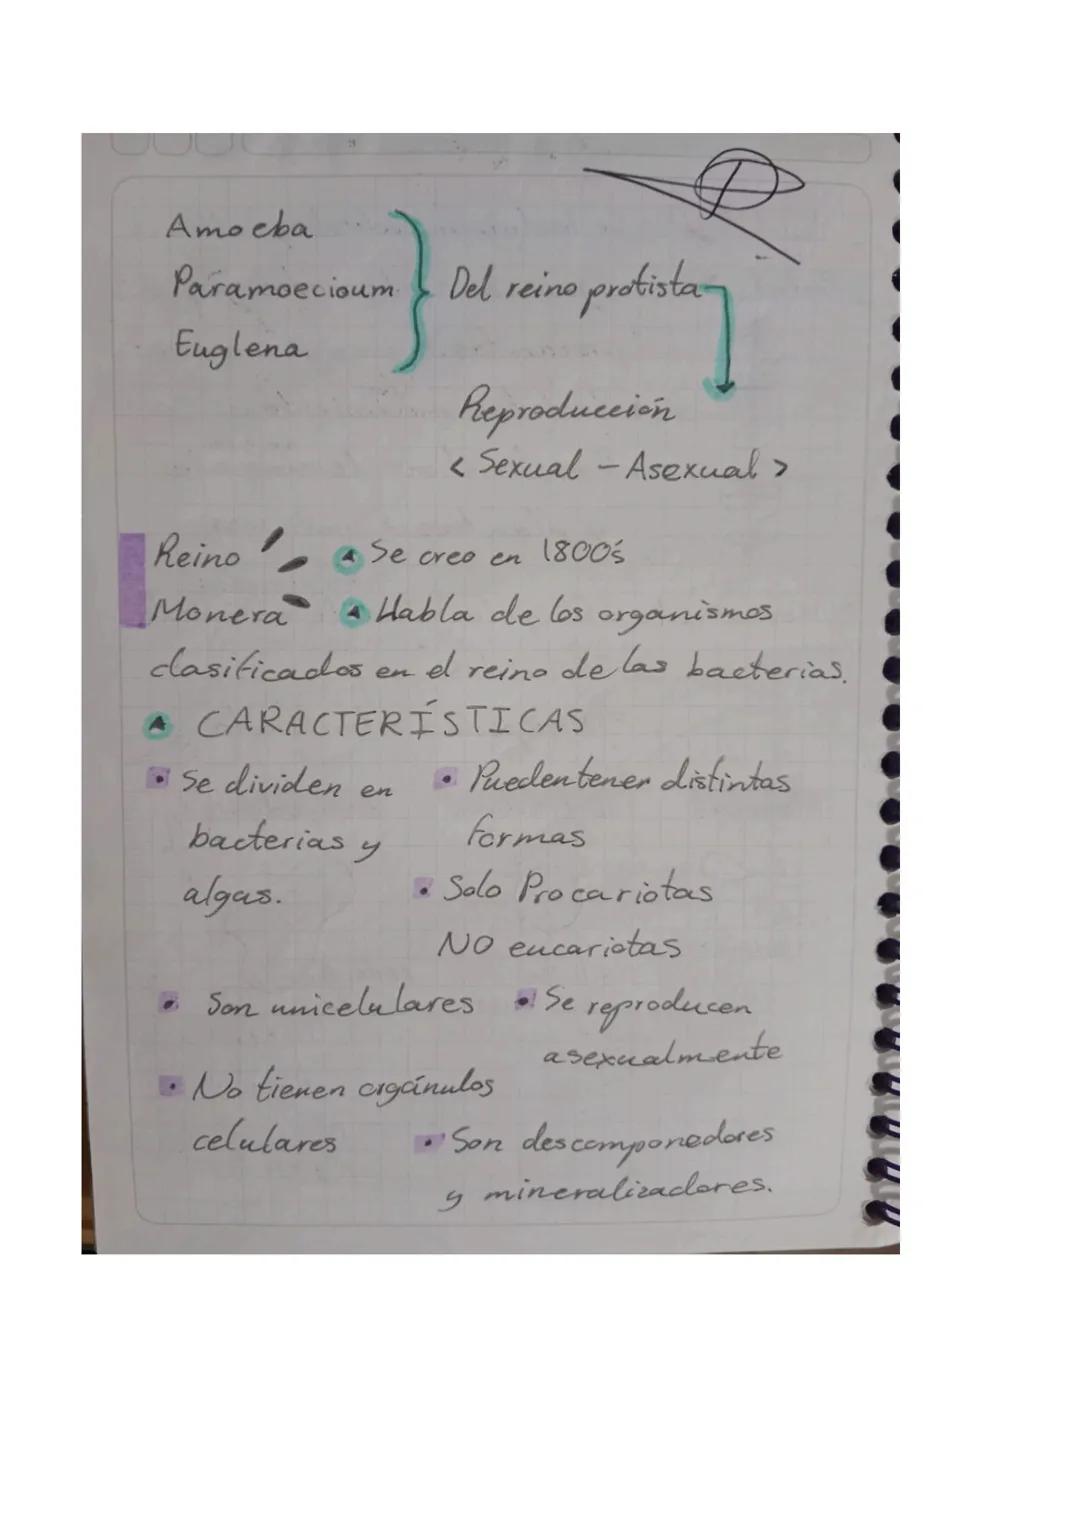 Amoeba
Paramoecioum
Euglena
Del reino protista
Reproducción
< Sexual - Asexual >
Reino
Monera
Se creo en 1800's
Habla de los organismos
clasificados en el reino de las bacterias.
CARACTERÍSTICAS
Se dividen en
bacterias y
algas.
Pueden tener distintas
formas
Solo Procariotas
NO eucariotas
Son unicelulares
Se reproducen
asexualmente
No tienen orgánulos
celulares
Son descomponedores
y mineralizadores.